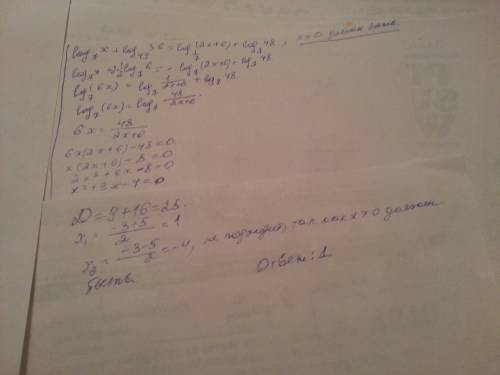 log₇ x + log₄₉ 36 = log_{1/7} (2x+6) + log₇ 48, x>0 должен быть
log₇ x + 2·½ log₇ 6 = - log₇ (2x+6) + log₇ 48
log₇ (6x) = log₇ 1/(2x+6) + log₇ 48.
log₇ (6x) = log₇ 48/(2x+6).
6x = 48/(2x+6)
6x(2x+6) - 48 = 0.
x(2x+6) - 8 = 0
2x² + 6x - 8 = 0
x² + 3x - 4 = 0
D = 9 + 16 = 25.
x₁ = (-3+5)/2 = 1
x₂ = (-3-5)/2 = -4, не подходит, так как x>0 должен
быть
Ответ: 1